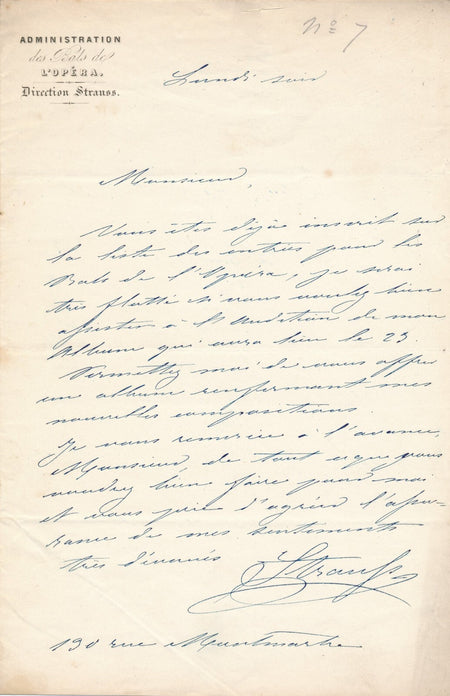 No 7
ADMINISTRATION
des Bals de
L'OPÉRA.
Direction Strauss.
Lundi soir
Monsieur,
Vous êtes déjà inscrit sur
la liste des entrées pour les
Bals de l'Opéra, je serai
très flatté si vous voulez bien
assister à l'Audition de mon
Album qui aura lieu le 23.
Permettez moi de vous offrir
un album renfermant mes
nouvelles compositions.
Je vous remercie à l'avance,
Monsieur, de tout ce que vous
voudrez bien faire pour moi
et vous prie d'agréer l'assu-
rance de mes sentiments
très dévoués
Strauss
190 rue Montmartre